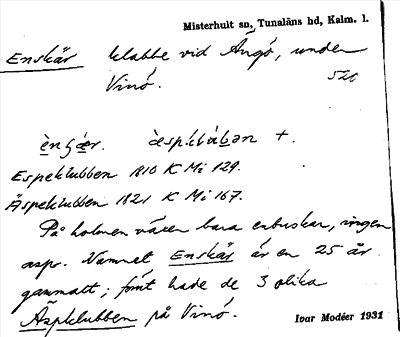 Misterhult sn, Tunaläns hd, Kalm. l.
Enskär klabbe vid Ängö, under
Vinö.
èngær. àspklàbən +.
Espeklubben 1810 K Mi 129.
Äspeklubben 1821 K Mi 167.
På holmen växer bara enbuskar, ingen
asp. Namnet Enskär är en 25 år
gammalt; förut hade de 3 olika
Äspklubben på Vinö.
Ivar Modéer 1931